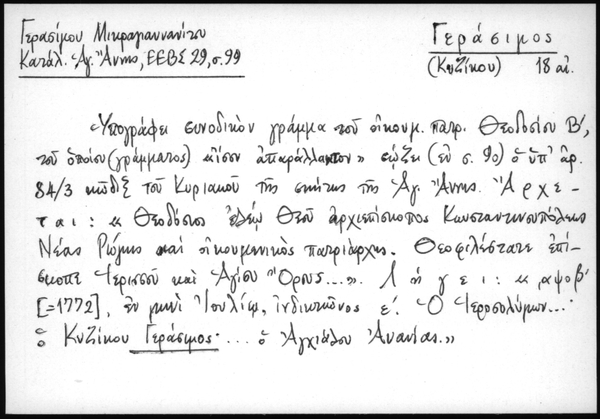 Γερασίμου Μικραγιαννανίτου
Κατάλ. Ἁγ. Ἄννης, ΕΕΒΣ 29, σ. 99
Γεράσιμος
(Κυζίκου) 18 αἰ.
Ὑπογράφει συνοδικὸν γράμμα τοῦ οἰκουμ. πατρ. Θεοδοσίου Β′,
τοῦ ὁποίου (γράμματος) «ἴσον ἀπαράλλακτον» σῴζει (ἐν σ. 90) ὁ ὑπ' ἀρ.
84/3 κῶδιξ τοῦ Κυριακοῦ τῆς σκήτης τῆς Ἁγ. Ἄννης. Ἄρχε-
ται: «Θεοδόσιος ἐλέῳ Θεοῦ ἀρχιεπίσκοπος Κωνσταντινουπόλεως
Νέας Ρώμης καὶ οἰκουμενικὸς πατριάρχης. Θεοφιλέστατε ἐπί-
σκοπε Ἱερισσοῦ καὶ Ἁγίου Ὄρους...». Λήγει: «͵αψοβ′
[=1772], ἐν μηνὶ Ἰουλίῳ, ἰνδικτιῶνος ε′. Ὁ Ἱεροσολύμων...
ὁ Κυζίκου Γεράσιμος· ... ὁ Ἀγχιάλου Ἀνανίας.»